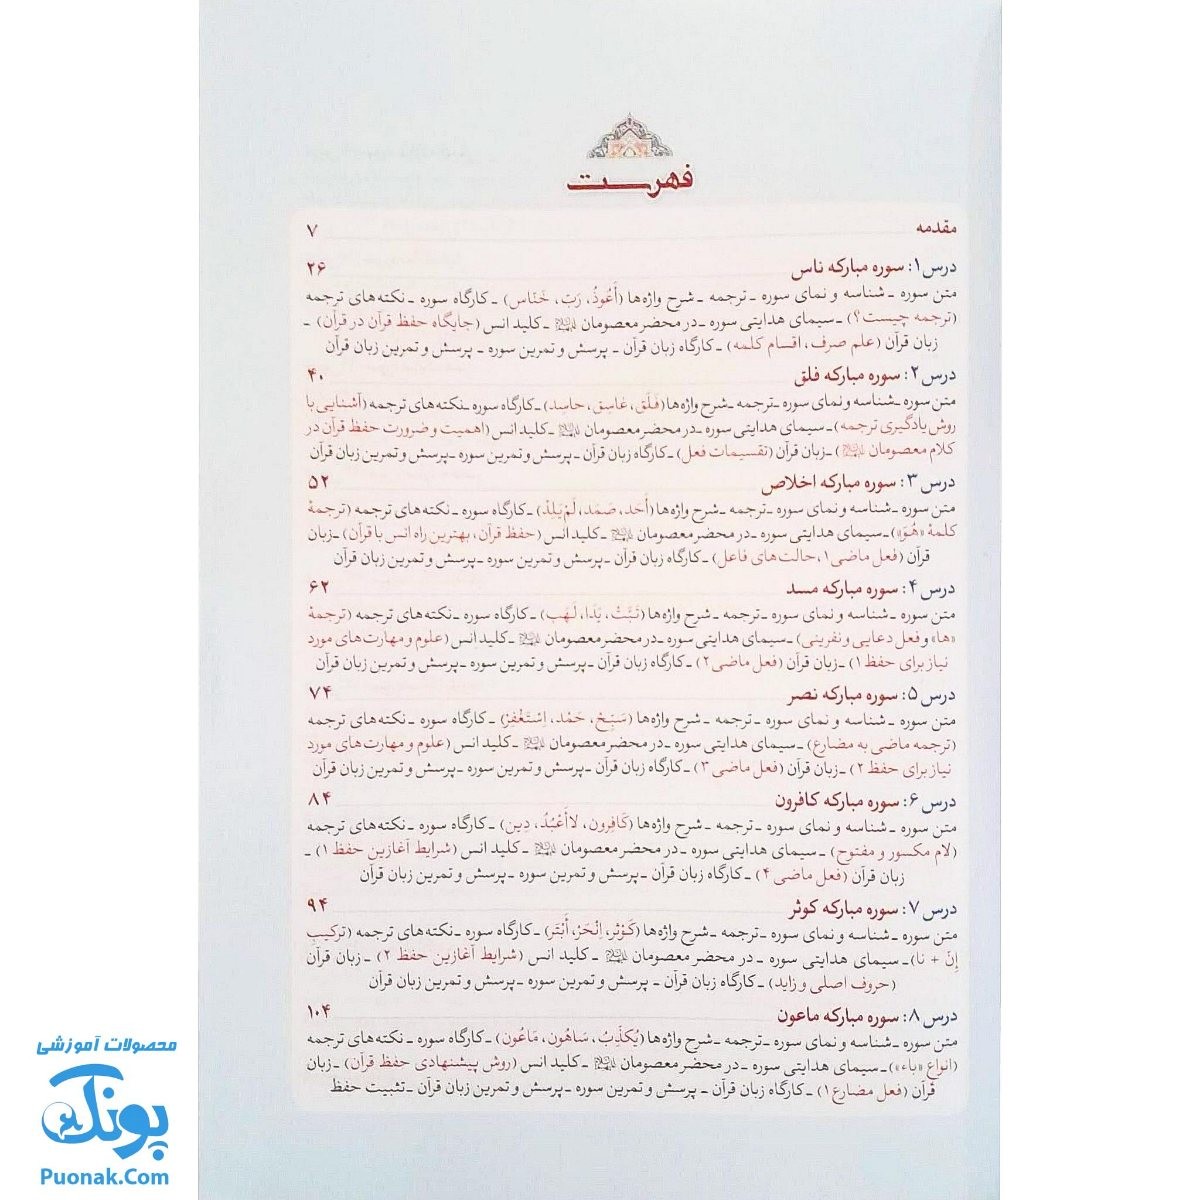 فهرست
مقدمه ۷
درس ۱: سوره مبارکه ناس ۲۶
متن سوره ـ شناسه و نمای سوره ـ ترجمه ـ شرح واژه‌ها (أَعُوذُ، رَبّ، خَنّاس) ـ کارگاه سوره ـ نکته‌های ترجمه
(ترجمه چیست؟) ـ سیمای هدایتی سوره ـ در محضر معصومان ـ کلید انس (جایگاه حفظ قرآن در قرآن) ـ
زبان قرآن (علم صرف، اقسام کلمه) ـ کارگاه زبان قرآن ـ پرسش و تمرین سوره ـ پرسش و تمرین زبان قرآن
درس ۲: سوره مبارکه فلق ۴۰
متن سوره ـ شناسه و نمای سوره ـ ترجمه ـ شرح واژه‌ها (فَلَق، غاسِق، حاسِد) ـ کارگاه سوره ـ نکته‌های ترجمه (آشنایی با
روش یادگیری ترجمه) ـ سیمای هدایتی سوره ـ در محضر معصومان ـ کلید انس (اهمیت و ضرورت حفظ قرآن در
کلام معصومان) ـ زبان قرآن (تقسیمات فعل) ـ کارگاه زبان قرآن ـ پرسش و تمرین سوره ـ پرسش و تمرین زبان قرآن
درس ۳: سوره مبارکه اخلاص ۵۲
متن سوره ـ شناسه و نمای سوره ـ ترجمه ـ شرح واژه‌ها (أَحَد، صَمَد، لَمْ یَلِدْ) ـ کارگاه سوره ـ نکته‌های ترجمه (ترجمهٔ
کلمهٔ «هُوَ») ـ سیمای هدایتی سوره ـ در محضر معصومان ـ کلید انس (حفظ قرآن، بهترین راه انس با قرآن) ـ زبان
قرآن (فعل ماضی ۱، حالت‌های فاعل) ـ کارگاه زبان قرآن ـ پرسش و تمرین سوره ـ پرسش و تمرین زبان قرآن
درس ۴: سوره مبارکه مسد ۶۲
متن سوره ـ شناسه و نمای سوره ـ ترجمه ـ شرح واژه‌ها (تَبَّتْ، یَدَا، لَهَب) ـ کارگاه سوره ـ نکته‌های ترجمه (ترجمهٔ
«ها» و فعل دعایی و نفرینی) ـ سیمای هدایتی سوره ـ در محضر معصومان ـ کلید انس (علوم و مهارت‌های مورد
نیاز برای حفظ ۱) ـ زبان قرآن (فعل ماضی ۲) ـ کارگاه زبان قرآن ـ پرسش و تمرین سوره ـ پرسش و تمرین زبان قرآن
درس ۵: سوره مبارکه نصر ۷۴
متن سوره ـ شناسه و نمای سوره ـ ترجمه ـ شرح واژه‌ها (سَبِّحْ، حَمْد، اِسْتَغْفِرْ) ـ کارگاه سوره ـ نکته‌های ترجمه
(ترجمه ماضی به مضارع) ـ سیمای هدایتی سوره ـ در محضر معصومان ـ کلید انس (علوم و مهارت‌های مورد
نیاز برای حفظ ۲) ـ زبان قرآن (فعل ماضی ۳) ـ کارگاه زبان قرآن ـ پرسش و تمرین سوره ـ پرسش و تمرین زبان قرآن
درس ۶: سوره مبارکه کافرون ۸۴
متن سوره ـ شناسه و نمای سوره ـ ترجمه ـ شرح واژه‌ها (کَافِرون، لاأَعْبُدُ، دِین) ـ کارگاه سوره ـ نکته‌های ترجمه
(لام مکسور و مفتوح) ـ سیمای هدایتی سوره ـ در محضر معصومان ـ کلید انس (شرایط آغازین حفظ ۱) ـ
زبان قرآن (فعل ماضی ۴) ـ کارگاه زبان قرآن ـ پرسش و تمرین سوره ـ پرسش و تمرین زبان قرآن
درس ۷: سوره مبارکه کوثر ۹۴
متن سوره ـ شناسه و نمای سوره ـ ترجمه ـ شرح واژه‌ها (کَوْثَر، اِنْحَرْ، أَبْتَر) ـ کارگاه سوره ـ نکته‌های ترجمه (ترکیبِ
إنّ + نا) ـ سیمای هدایتی سوره ـ در محضر معصومان ـ کلید انس (شرایط آغازین حفظ ۲) ـ زبان قرآن
(حروف اصلی و زاید) ـ کارگاه زبان قرآن ـ پرسش و تمرین سوره ـ پرسش و تمرین زبان قرآن
درس ۸: سوره مبارکه ماعون ۱۰۴
متن سوره ـ شناسه و نمای سوره ـ ترجمه ـ شرح واژه‌ها (یُکَذِّبُ، سَاهُون، مَاعُون) ـ کارگاه سوره ـ نکته‌های ترجمه
(انواع «باء») ـ سیمای هدایتی سوره ـ در محضر معصومان ـ کلید انس (روش پیشنهادی حفظ قرآن) ـ زبان
قرآن (فعل مضارع ۱) ـ کارگاه زبان قرآن ـ پرسش و تمرین سوره ـ پرسش و تمرین زبان قرآن ـ تثبیت حفظ
محصولات آموزشی
پونک
Puonak.Com